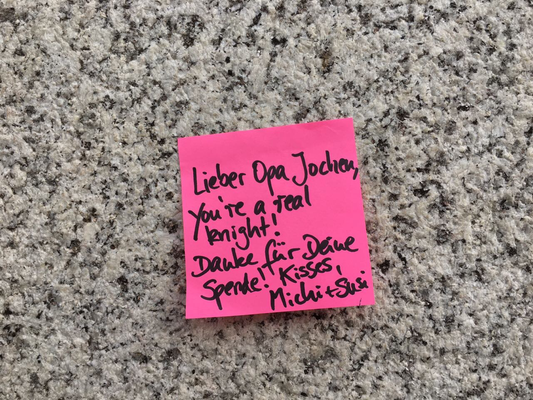 Lieber Opa Jochen,
You're a real
knight!
Danke für Deine
Spende! Kisses,
Michi + Susi